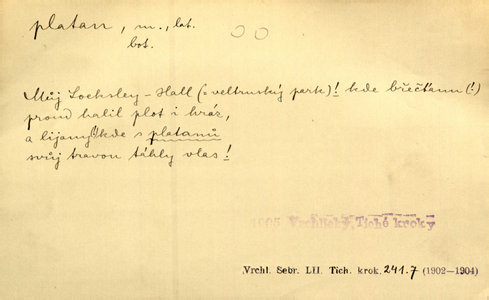 platan, m., lat.
bot.
Můj Locksley-Hall (= veltruský park)! kde břečťanu (!)
proud halil plot i hráz,
a lijany! kde s platanů
svůj travou táhly vlas!
1905 Vrchlický, Tiché kroky
Vrchl. Sebr. LII. Tich. krok. 241.7 (1902—1904)